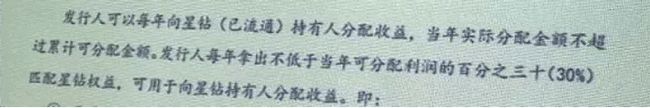 发行人可以每年向星钻（已流通）持有人分配收益，当年实际分配金额不超
过累计可分配金额。发行人每年拿出不低于当年可分配利润的百分之三十(30%)
匹配星钻权益，可用于向星钻持有人分配收益。即：